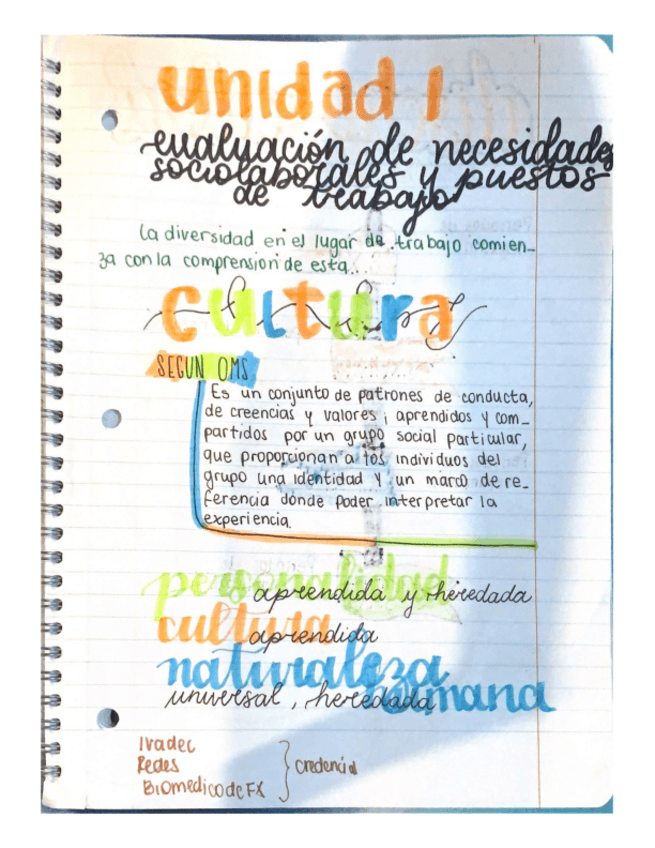 unidad 1
evaluación de necesidades
sociolaborales y puestos
de trabajo
La diversidad en el lugar de trabajo comien-
za con la comprension de esta...
cultura
SEGUN OMS
Es un conjunto de patrones de conducta,
de creencias y valores ; aprendidos y com-
partidos por un grupo social particular,
que proporcionan a los individuos del
grupo una identidad y un marco de re-
ferencia donde poder interpretar la
experiencia.
personalidad
aprendida y heredada
cultura
aprendida
naturaleza
humana
universal, heredada
Ivadec
Redes
Biomedico de FX
credencial